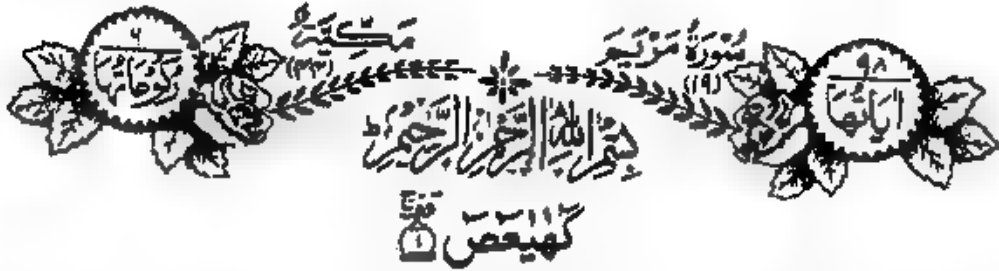 اٰيَاتُهَا ٩٨ سُوْرَةُ مَرْيَمَ (١٩) مَكِّيَّةٌ (٤٤) رُكُوْعَاتُهَا ٦
بِسْمِ اللهِ الرَّحْمٰنِ الرَّحِيْمِ
كٓهٰيٰعٓصٓ ١